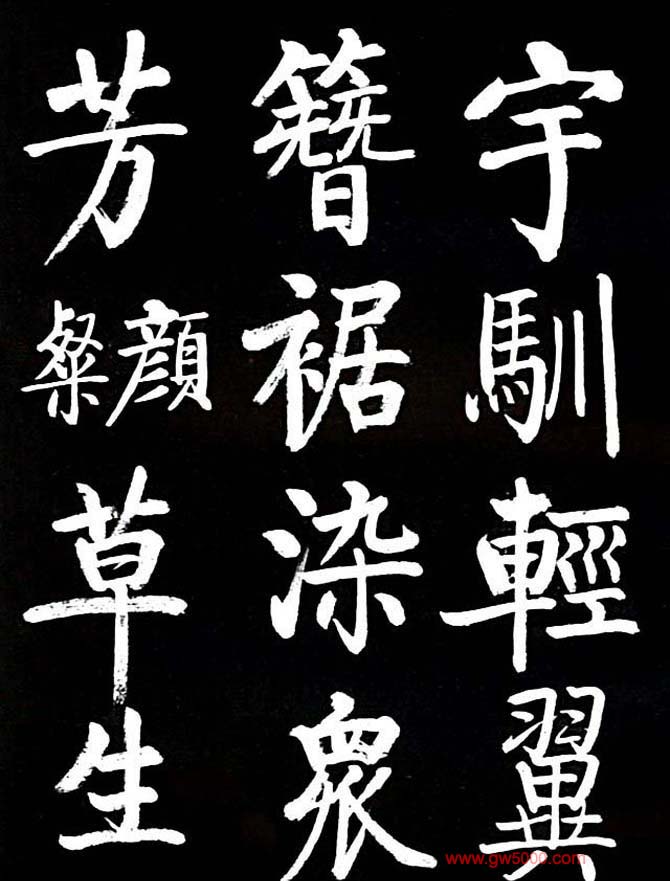 宇馴輕翼
簪裾染衆
芳顔粲草生
www.gw5000.com